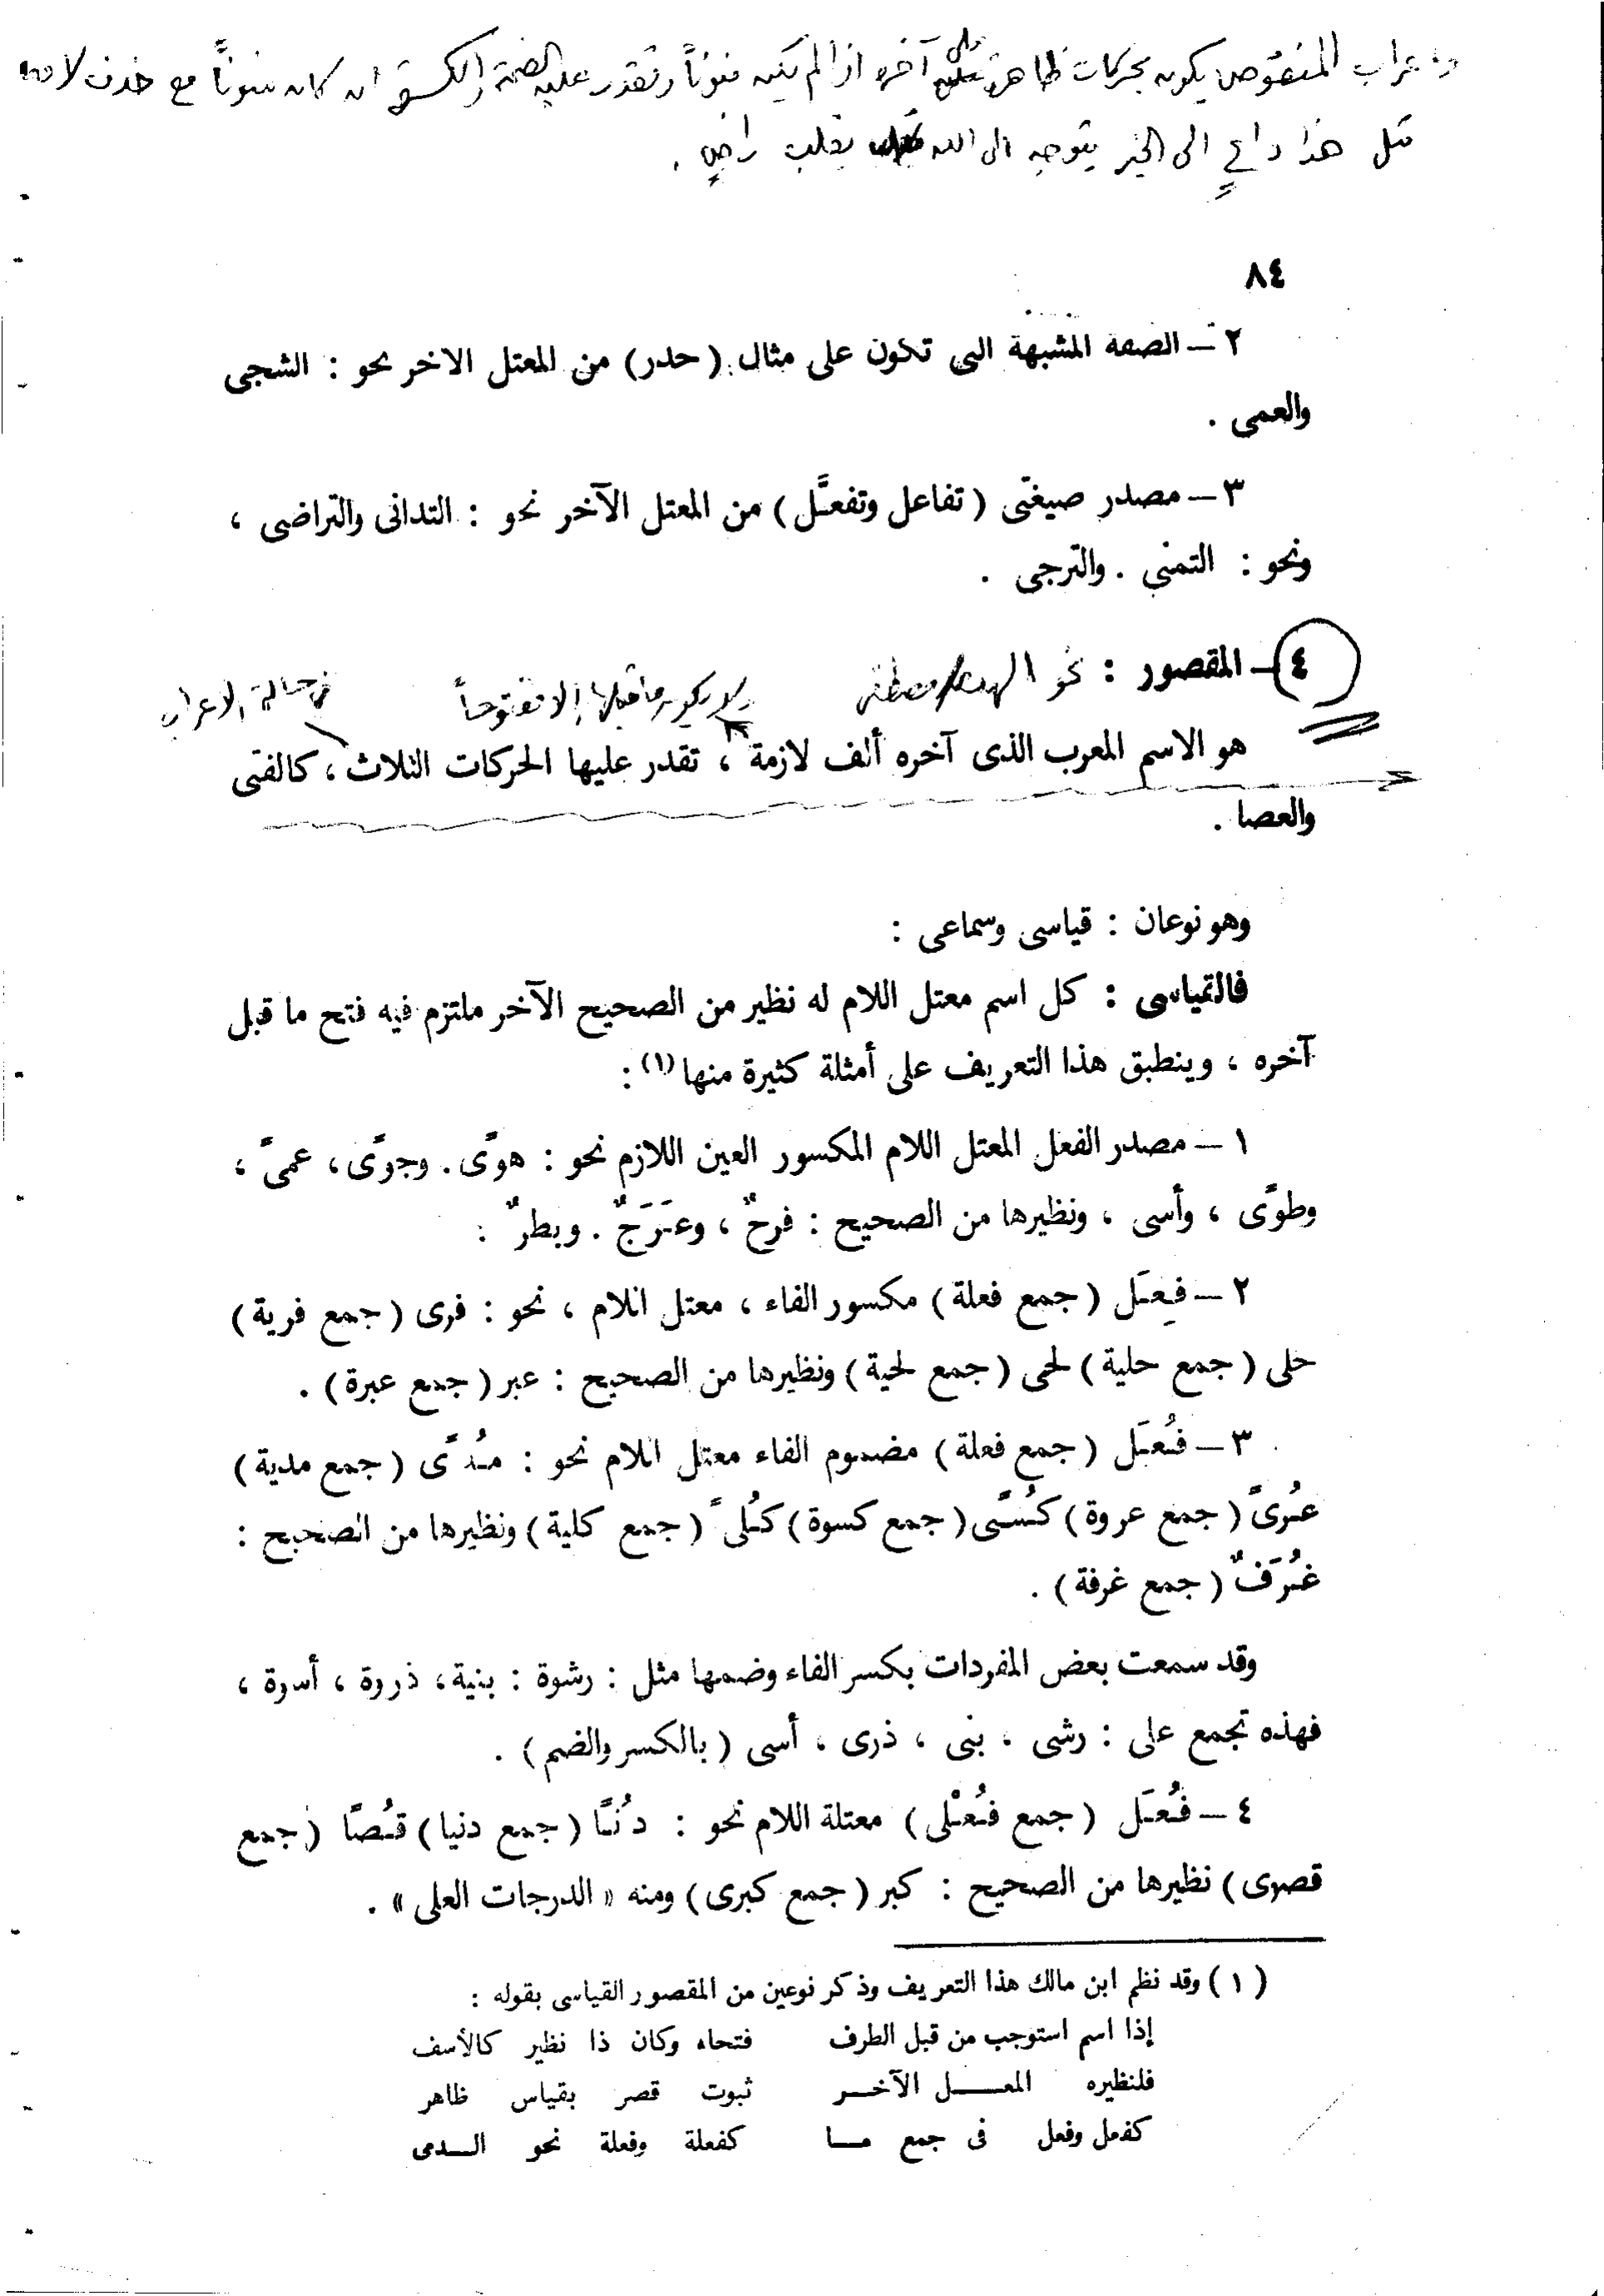 واعراب المنقوص يكون بحركات ظاهرة على آخره اذا لم يكن منوناً وتقدر عليه الضمة والكسرة ان كان منوناً مع حذف لامه
مثل هذا داعٍ الى الخير يتوجه الى الله بقلب راضٍ .
٨٤
٢ – الصفة المشبهة التى تكون على مثال (حذر) من المعتل الآخر نحو : الشجى
والعمى .
٣ – مصدر صيغتى (تفاعل وتفعَّل) من المعتل الآخر نحو : التدانى والتراضى ،
ونحو : التمنى . والترجى .
٤ – المقصور : نحو
ولا يكون ما قبلها إلا مفتوحاً في حالة الاعراب
هو الاسم المعرب الذى آخره ألف لازمة ، تقدر عليها الحركات الثلاث ، كالفتى
والعصا .
وهو نوعان : قياسى وسماعى :
فالقياسى : كل اسم معتل اللام له نظير من الصحيح الآخر ملتزم فيه فتح ما قبل
آخره ، وينطبق هذا التعريف على أمثلة كثيرة منها (١) :
١ – مصدر الفعل المعتل اللام المكسور العين اللازم نحو : هوًى . وجوًى ، عمىً ،
وطوًى ، وأسى ، ونظيرها من الصحيح : فرحٌ ، وعَرَجٌ . وبطرٌ :
٢ – فِعَل (جمع فعلة) مكسور الفاء ، معتل اللام ، نحو : فرى (جمع فرية)
حلى (جمع حلية) لحى (جمع لحية) ونظيرها من الصحيح : عبر (جمع عبرة) .
٣ – فُعَل (جمع فعلة) مضموم الفاء معتل اللام نحو : مُدًى (جمع مدية)
عُرىً (جمع عروة) كُسًى (جمع كسوة) كُلىً (جمع كلية) ونظيرها من الصحيح :
غُرَفٌ (جمع غرفة) .
وقد سمعت بعض المفردات بكسر الفاء وضمها مثل : رشوة : بنية ، ذروة ، أسوة ،
فهذه تجمع على : رشى ، بنى ، ذرى ، أسى (بالكسر والضم) .
٤ – فُعَل (جمع فُعْلى) معتلة اللام نحو : دُنًا (جمع دنيا) قُصًا (جمع
قصوى) نظيرها من الصحيح : كبر (جمع كبرى) ومنه « الدرجات العلى » .
(١) وقد نظم ابن مالك هذا التعريف وذكر نوعين من المقصور القياسى بقوله :
إذا اسم استوجب من قبل الطرف فتحاه وكان ذا نظير كالأسف
فلنظيره المعـــل الآخـــر ثبوت قصر بقياس ظاهر
كفعل وفعل فى جمع مـــا كفعلة وفعلة نحو الـــدمى